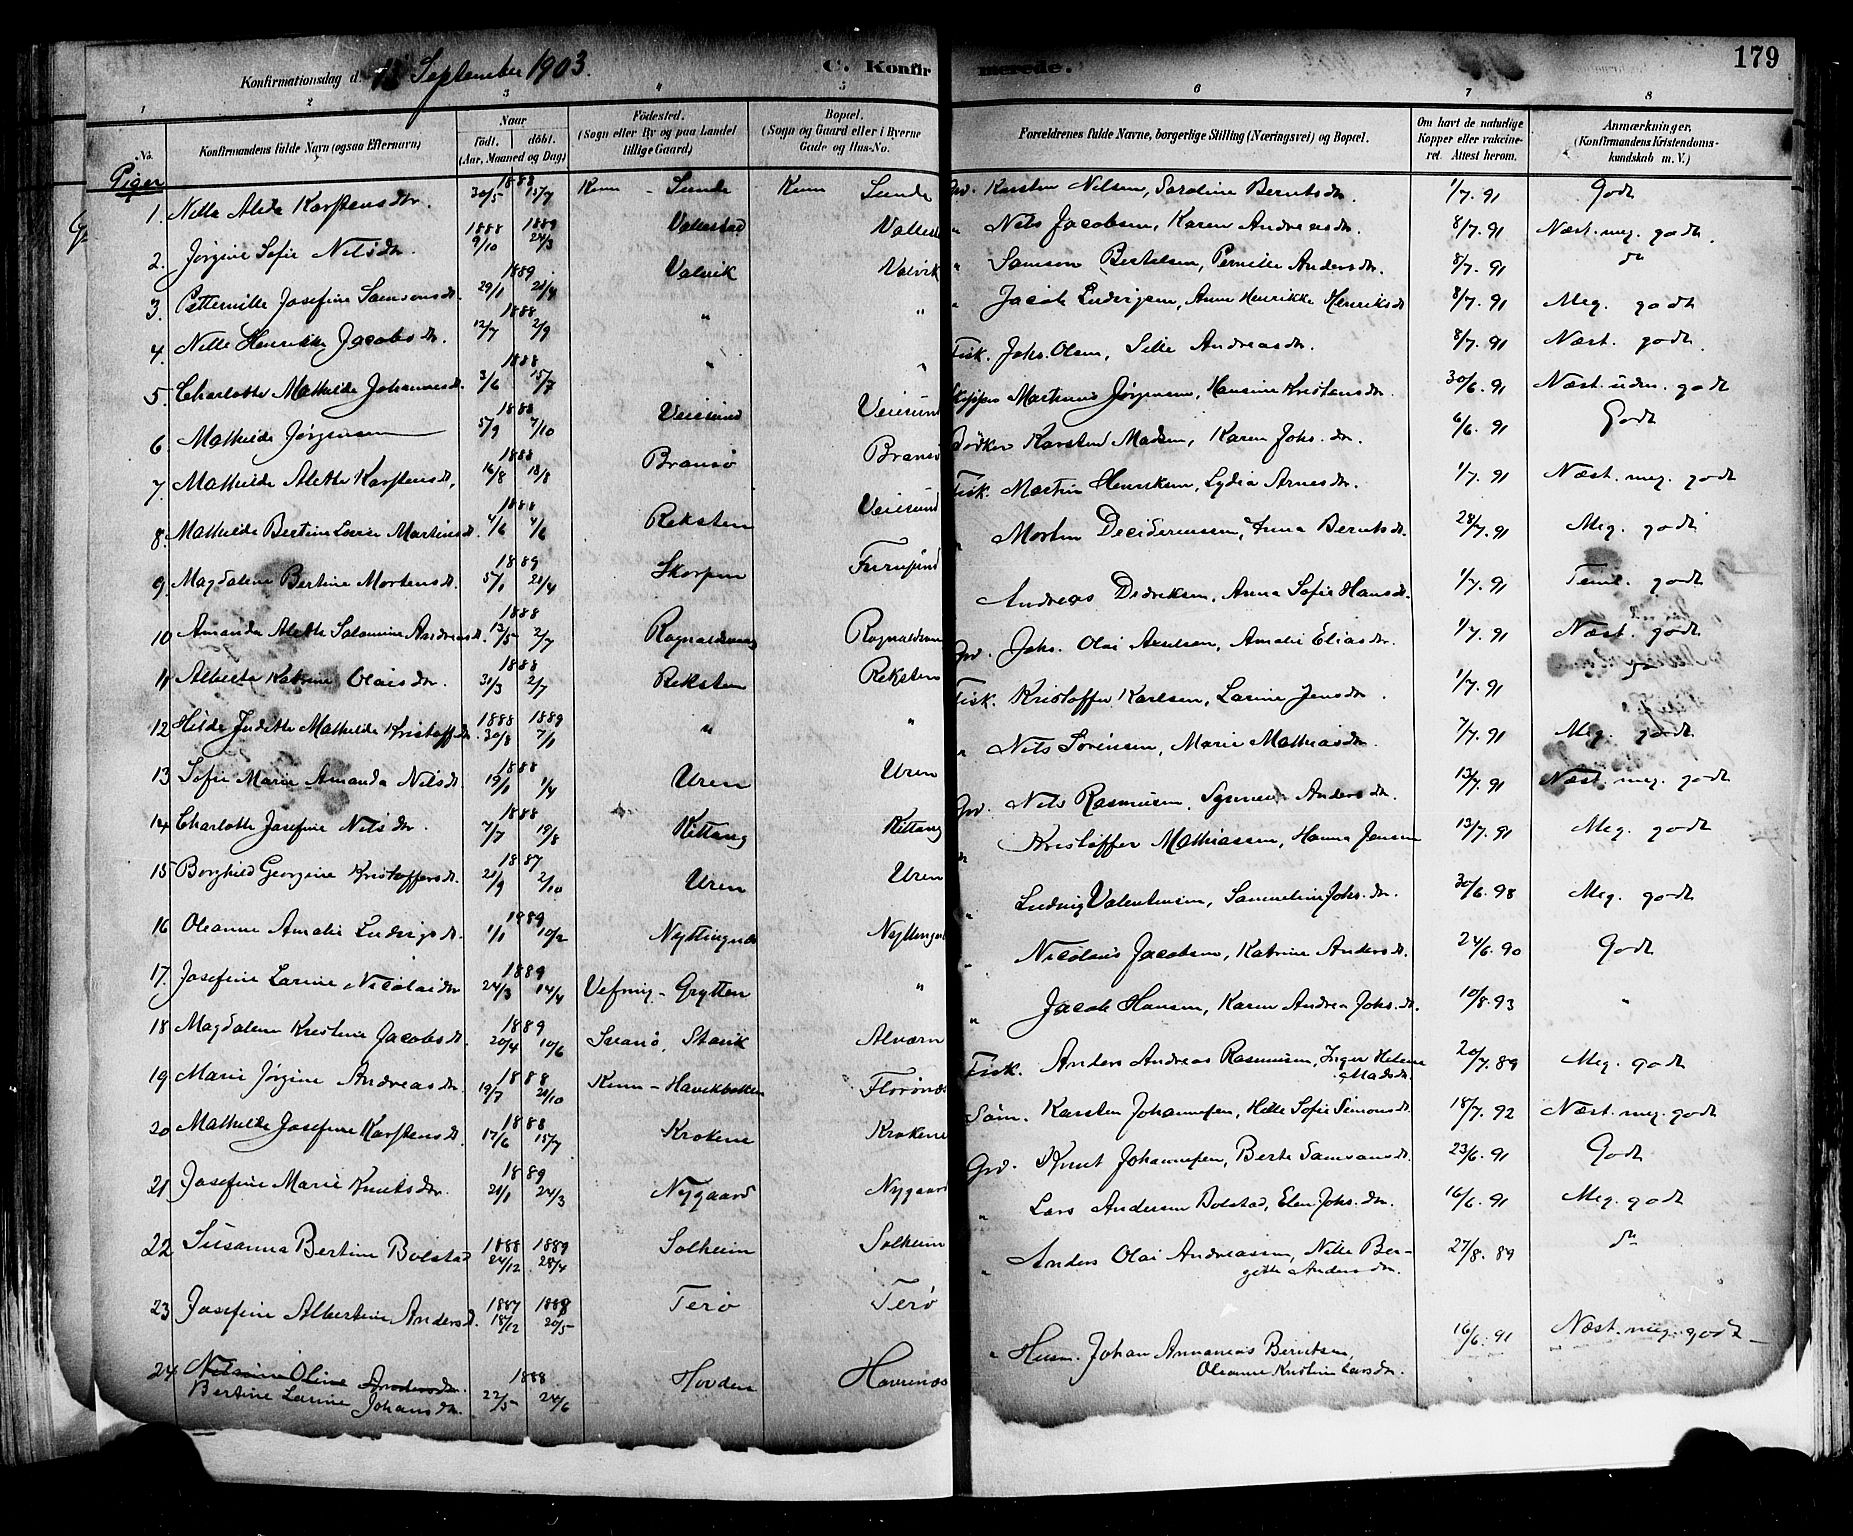 179
Konfirmationsdag d. 13 September 1903.
C. Konfirmerede.
1 2 3 4 5 6 7 8
No.
Konfirmandens fulde Navn (ogsaa Efternavn)
Naar
Födt. döbt.
(Aar, Maaned og Dag)
Födested.
(Sogn eller By og paa Landet tillige Gaard)
Bopæl.
(Sogn og Gaard eller i Byerne Gade og Hus-No.
Forældrenes fulde Navne, borgerlige Stilling (Næringsvei) og Bopæl.
Om havt de naturlige Kopper eller vakcineret. Attest herom.
Anmærkninger.
(Konfirmandens Kristendomskundskab m. V.)
Piger
1. Nille Alida Karstensdtr. 1888 30/5 15/7 Kinn - Sunde Kinn Sunde Grd. Karsten Nilsen, Saroline Berntsdtr. 1/7. 91 Godt
2. Jørgine Sofie Nilsdtr. 1888 9/10 1889 24/3 Valvestad Nils Jacobsen, Karen Andreasdtr. 8/7. 91 Næst. meg. godt.
3. Petternille Josefine Samsonsdt. 1889 29/1 21/4 Valvik Valvik " Samson Bertelsen, Pernille Andersdtr. 8/7. 91 do
4. Nille Henrikke Jacobsdtr. 1888 12/7 2/9 " " " Jacob Ludvigsen, Anne Henrikke Henriksdt 8/7. 91 Meg. godt
5. Charlotte Mathilde Johannesdt. 1888 3/6 15/7 " " Fisk. Johs. Olsen, Silke Andreasdtr. 8/7. 91 Næst. godt.
6. Mathilde Jørgensen 1888 5/9 7/10 Veiesund Veiesund Skipper Martinus Jørgensen, Hansine Kristensdtr. 30/6. 91 Næst. uden. godt
7. Mathilde Alette Karstensdt. 1888 16/8 18/8 Bransø Bransø Bødker Karsten Madsen, Karen Johs. dtr. 6/6. 91 Godt
8. Mathilde Bertine Lovise Martinsdt. 1888 4/6 4/6 Reksten Veiesund Fisk. Martin Henriksen, Lydia Arnesdtr. 1/7. 91 Næst. meg. godt
9. Magdalene Bertine Mortensdt. 1889 5/1 21/4 Skorpen Furusund " Morten Desideriussen, Anna Berntsdt. 28/7. 91 Meg. godt
10 Amanda Alette Salamine Andreasdt. 1888 13/5 2/7 Rognaldsvaag Rognaldsvaag Andreas Didriksen, Anna Sofie Hansdt. 1/7. 91 Teml. godt
11 Alberta Katrine Olaisdtr. 1888 31/3 2/7 Reksten Reksten Grd. Johs. Olai Axelsen, Amalie Eliasdtr 1/7. 91 Næst. godt
12 Hilda Judithe Mathilde Kristoffdtr. 1888 30/8 1889 7/1 " " Fisk. Kristoffer Karlsen, Larine Jensdtr. 1/7. 91
13 Sofie Marie Amanda Nilsdt. 1888 19/1 1/4 Uren Uren " Nils Sørensen, Marie Mathiasdtr. 7/7. 91 Meg. godt
14 Charlotte Josefine Nilsdtr. 1888 7/7 19/8 Kittang Kittang Grd. Nils Rasmussen, Synneve Andersdtr. 13/7. 91 Næst. meg. godt
15 Borghild Georgine Kristoffersdt. 1887 21/9 2/10 Uren Uren do Kristoffer Mathiassen, Hanna Jensen 13/7. 91 Meg. godt
16 Oleanne Amalie Ludvigsdt. 1889 1/1 10/2 Nyttingnæs Nyttingnæs " Ludvig Valentinsen, Sammeline Johs. dtr. 30/6. 98 Meg. godt
17. Josefine Larine Nicolaidtr 1889 24/3 14/4 Vefring - Grytten " " Nicolaus Jacobsen, Katrine Andersdt. 24/6. 90 Godt
18 Magdalene Kristine Jacobsdt. 1889 20/4 10/6 Svanø, Stavik Alværn " Jacob Hansen, Karen Andrea Johs. dt. 10/8. 93 "
19 Marie Jørgine Andreasdtr 1888 19/7 21/10 Kinn - Havikbotten Florønæs Fisk. Anders Andreas Rasmussen, Inger Helene Madsdtr. 20/7. 89 Meg. godt
20 Mathilde Josefine Karstensdt. 1888 17/6 15/7 Krokene Krokene Søm. Karsten Johannesen, Helle Sofie Simonsdt. 18/7. 92 Næst. meg. godt
21 Josefine Marie Knutsdtr. 1889 21/1 24/3 Nygaard Nygaard Grd. Knut Johannesen, Berte Samsonsdt. 23/6. 91 Godt
22 Susanna Bertine Bolstad 1888 24/12 1889 28/4 Solheim Solheim " Lars Andersen Bolstad, Elen Johs. dtr. 16/6. 91 Meg. godt
23 Josefine Albertine Andersdt. 1887 18/12 1888 20/5 Terø Terø " Anders Olai Andreassen, Nille Bergitte Andersdtr. 27/8. 89 do
24 Nilsine Oline Andersdtr.
Bertine Larine Johansdtr. 1888 22/5 24/6 Hovden Havrenæs " Husm. Johan Annanias Berntsen, Oleanne Kristine Larsdtr. 16/6. 91 Næst. meg. godt